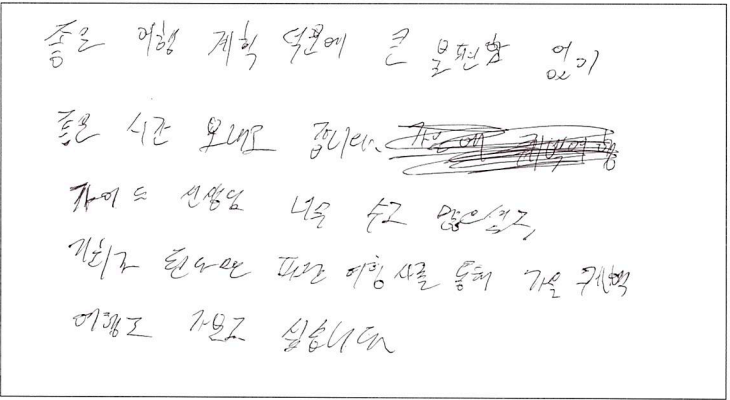 좋은 여행 계획 덕분에 큰 불편함 없이
좋은 시간 보내고 갑니다
가이드 선생님 너무 수고 많으셨고,
기회가 된다면 파란 여행사를 통해 가을 퀘벡
여행도 가보고 싶습니다